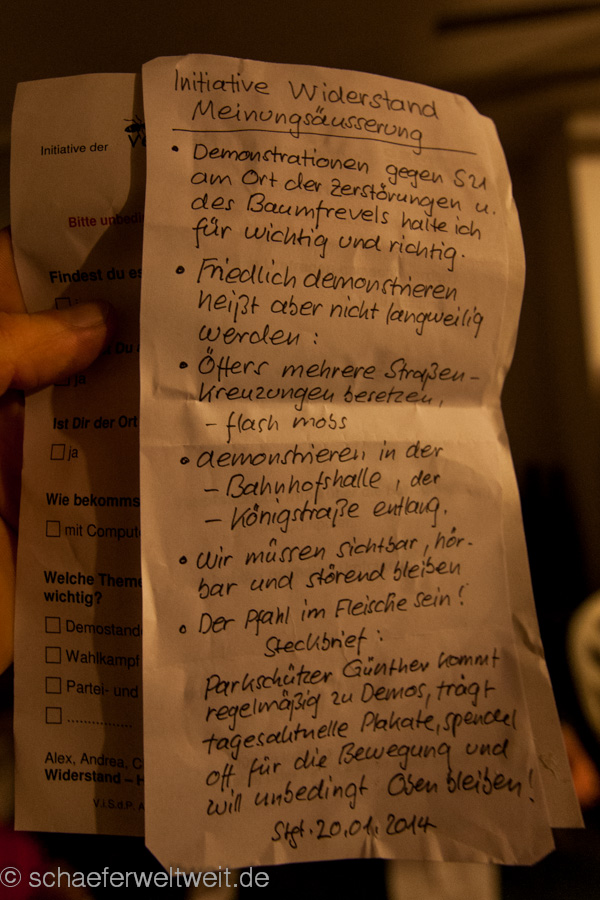 Initiative Widerstand
Meinungsäusserung
• Demonstrationen gegen S21
am Ort der Zerstörungen u.
des Baumfrevels halte ich
für wichtig und richtig.
• Friedlich demonstrieren
heißt aber nicht langweilig
werden:
• Öfters mehrere Straßen-
kreuzungen besetzen,
- flash mobs
• demonstrieren in der
- Bahnhofshalle, der
- Königstraße entlang.
• Wir müssen sichtbar, hör-
bar und störend bleiben
• Der Pfahl im Fleische sein!
Steckbrief:
Parkschützer Günther kommt
regelmäßig zu Demos, trägt
tagesaktuelle Plakate, spendet
oft für die Bewegung und
will unbedingt Oben bleiben!
Stgt. 20.01.2014
Initiative der
Bitte unbedi
Findest du es
ja
Ist Dir der Ort
ja
Wie bekomms
mit Compute
Welche Theme
wichtig?
Demostand
Wahlkampf
Partei- und
................
Alex, Andrea, C
Widerstand – H
V.i.S.d.P. A
© schaeferweltweit.de